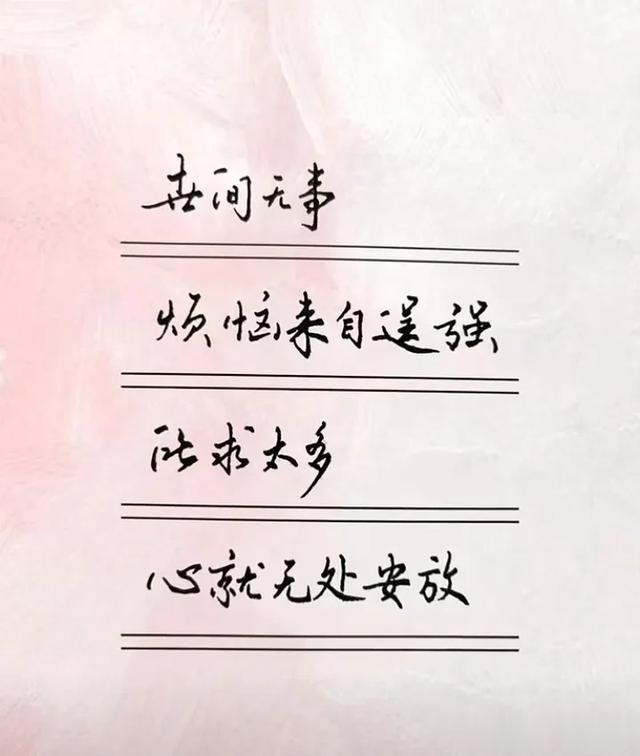 世间无事
烦恼来自逞强
所求太多
心就无处安放